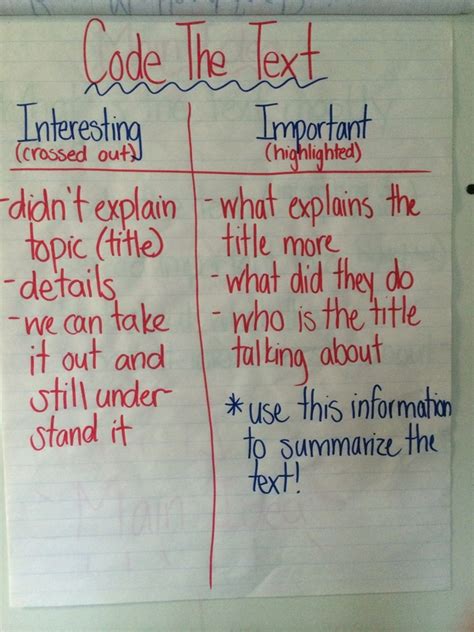 Code The Text
Interesting
(crossed out)
-didn't explain
topic (title)
-details
-we can take
it out and
still under-
stand it
Important
(highlighted)
-what explains the
title more
-what did they do
-who is the title
talking about
*use this information
to summarize the
text!
Main Idea